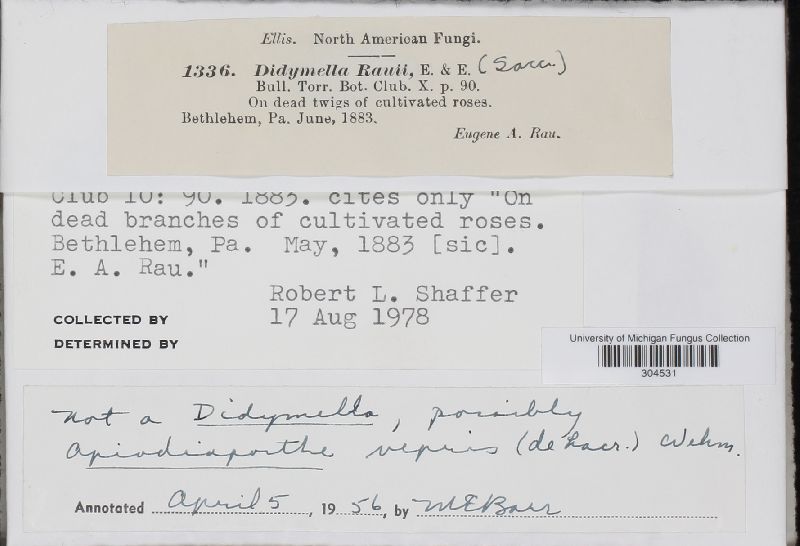 Ellis. North American Fungi.
1336. Didymella Rauii, E. & E. (Sacc.)
Bull. Torr. Bot. Club. X. p. 90.
On dead twigs of cultivated roses.
Bethlehem, Pa. June, 1883.
Eugene A. Rau.
Club 10: 90. 1883. cites only "On
dead branches of cultivated roses.
Bethlehem, Pa. May, 1883 [sic].
E. A. Rau."
Robert L. Shaffer
COLLECTED BY 17 Aug 1978
DETERMINED BY
University of Michigan Fungus Collection
304531
Not a Didymella, possibly
Apiodiaporthe vepris (de Lacr.) Wehm.
Annotated April 5, 1956, by M E Barr